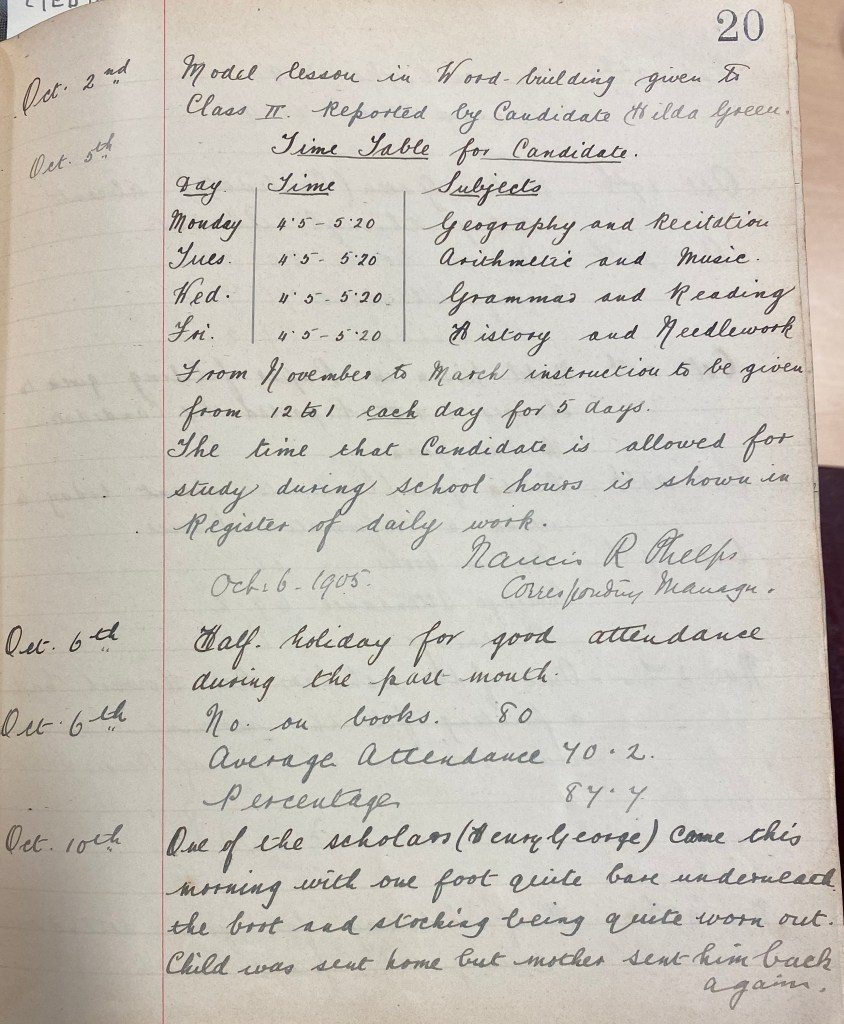 20
Oct. 2nd Model lesson in Word-building given to
Class II. Reported by Candidate Hilda Green.
Oct. 5th Time Table for Candidate.
Day. Time Subjects
Monday 4.5 - 5.20 Geography and Recitation
Tues. 4.5 - 5.20 Arithmetic and Music.
Wed. 4.5 - 5.20 Grammar and Reading
Fri. 4.5 - 5.20 History and Needlework
From November to March instruction to be given
from 12 to 1 each day for 5 days.
The time that Candidate is allowed for
study during school hours is shown in
Register of daily work.
R Phelps
Oct. 6 - 1905. Corresponding Manager.
Oct. 6th Half. holiday for good attendance
during the past month.
Oct. 6th No. on books. 80
Average Attendance 70.2.
Percentage 87.7
Oct. 10th One of the scholars (Henry George) came this
morning with one foot quite bare underneath
the boot and stocking being quite worn out.
Child was sent home but mother sent him back
again.